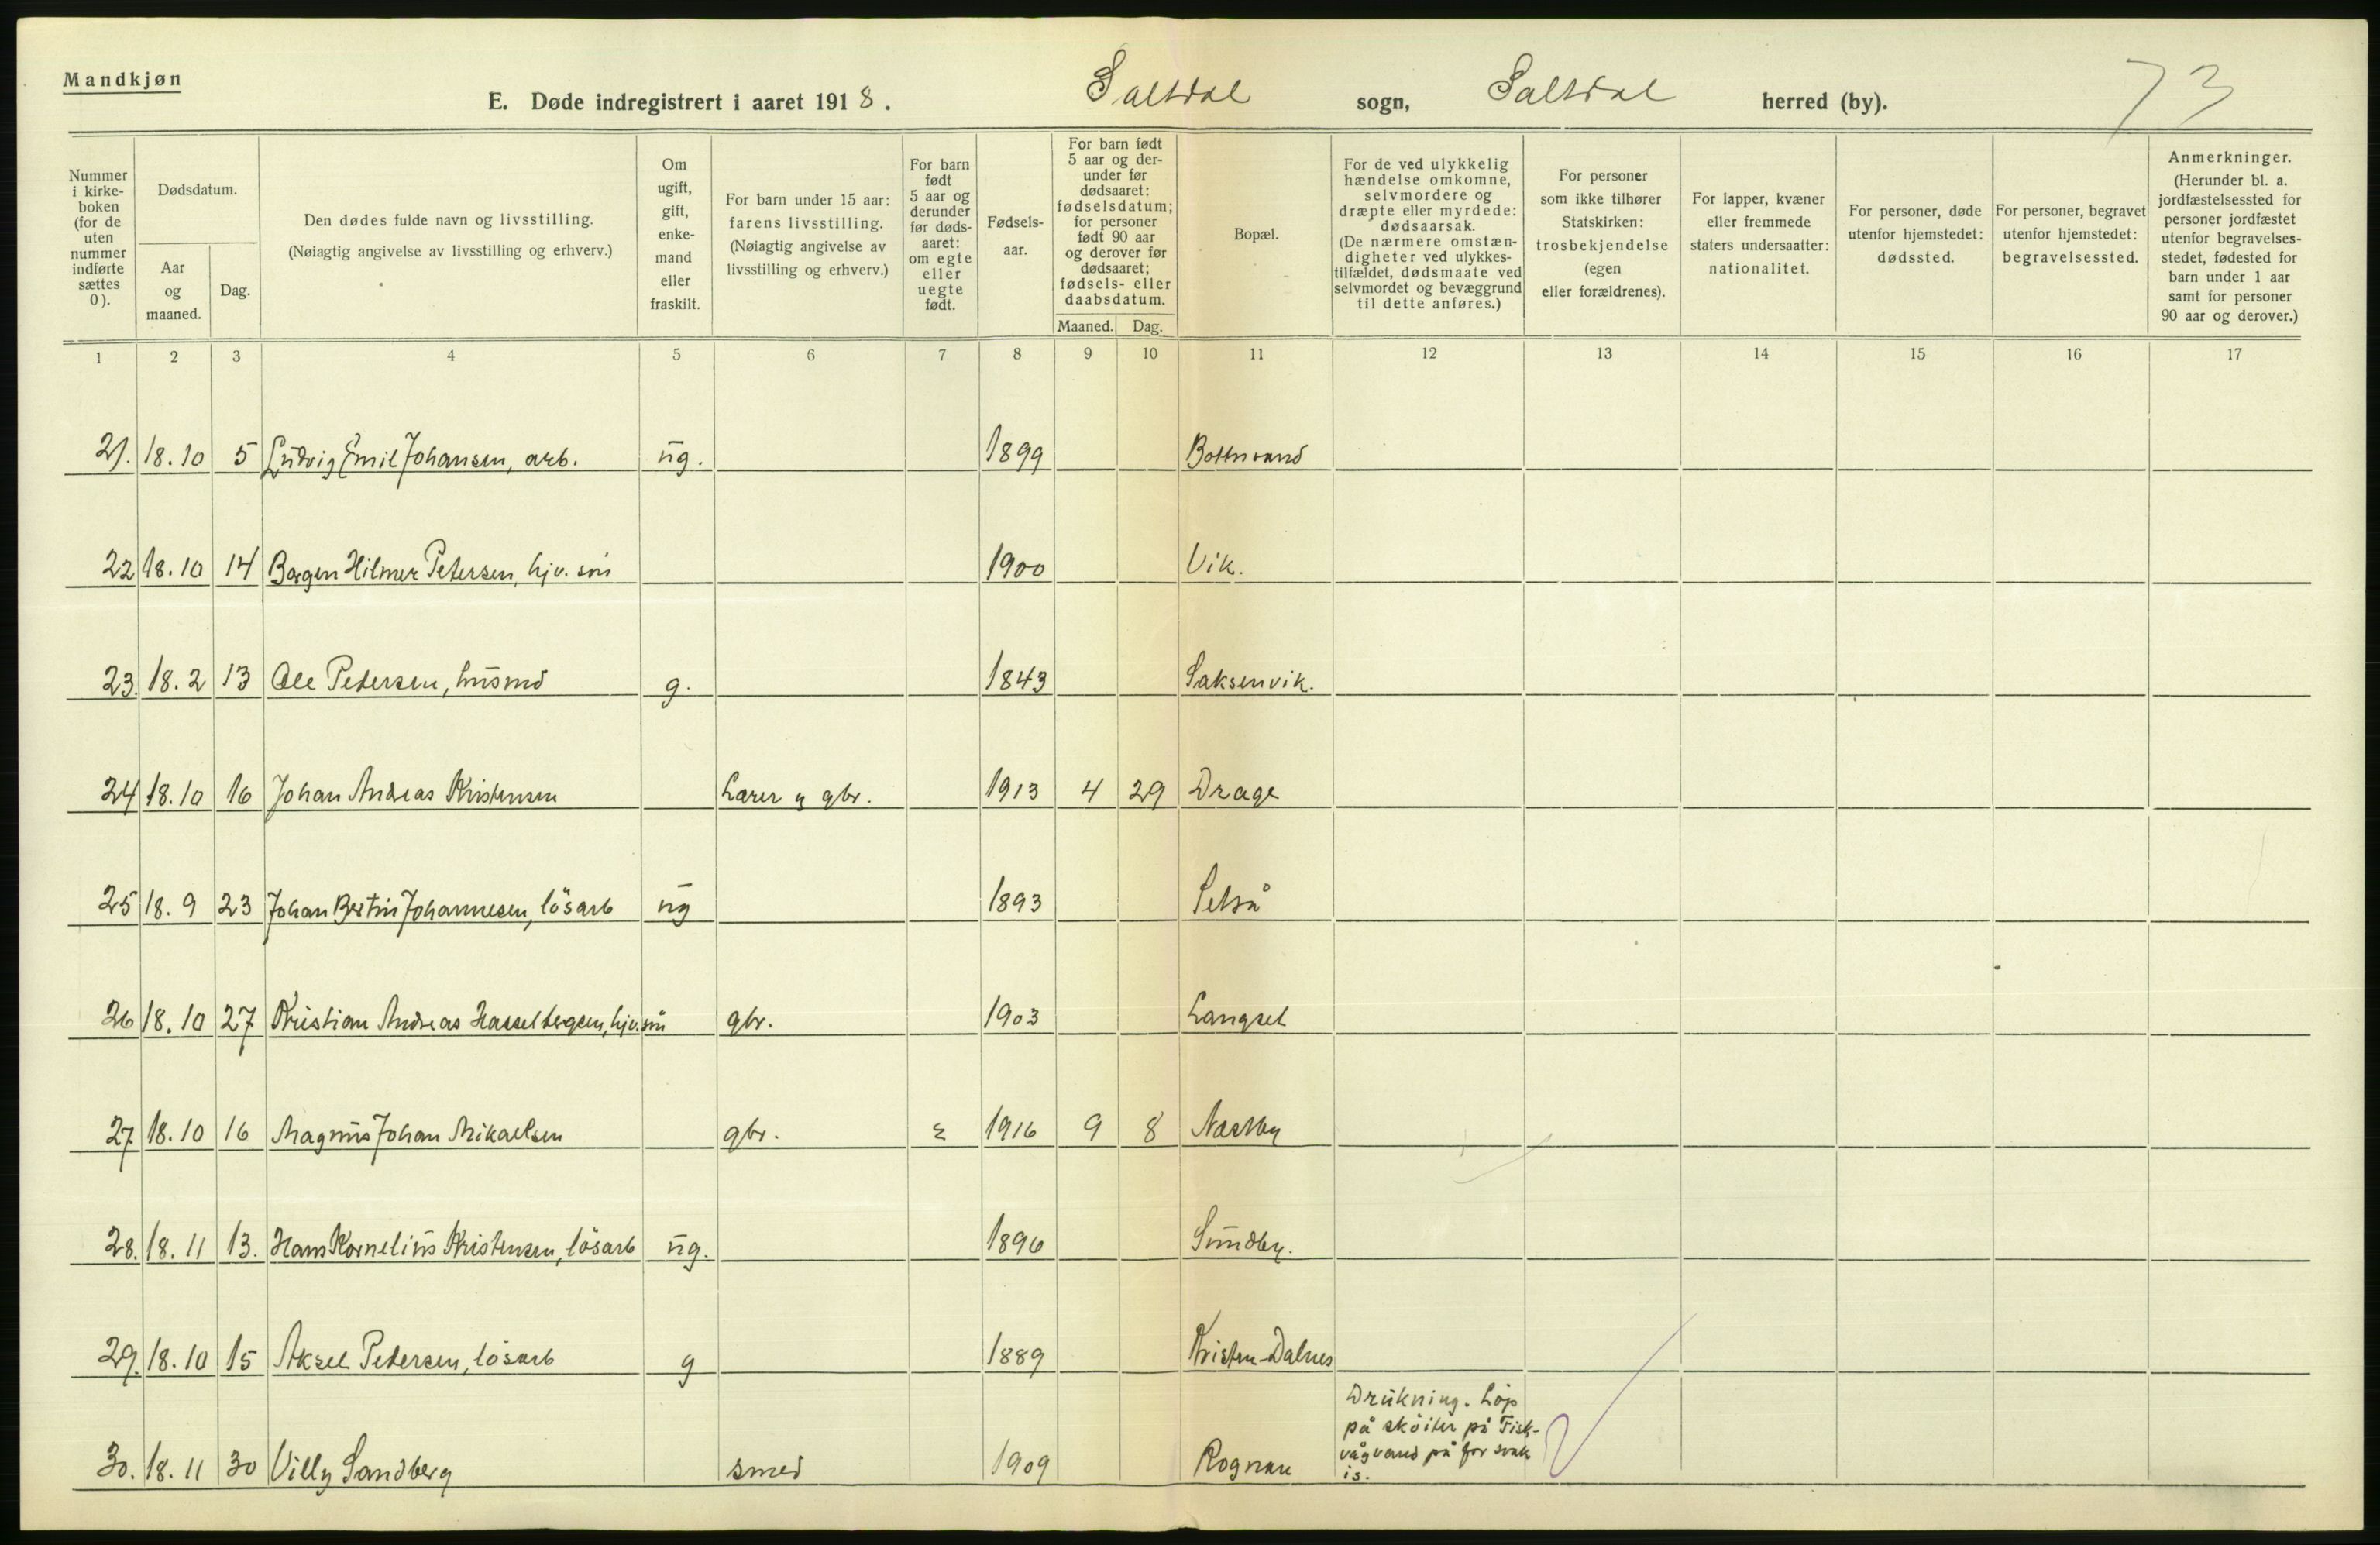 Mandkjøn
E. Døde indregistrert i aaret 1918. Saltdal sogn, Saltdal herred (by). 73
Nummer i kirke- boken (for de uten nummer indførte sættes 0).
Dødsdatum.
Aar og maaned.
Dag.
Den dødes fulde navn og livsstilling.
(Nøiagtig angivelse av livsstilling og erhverv.)
Om ugift, gift, enke- mand eller fraskilt.
For barn under 15 aar: farens livsstilling.
(Nøiagtig angivelse av livsstilling og erhverv.)
For barn født 5 aar og derunder før døds- aaret: om egte eller uegte født.
Fødsels- aar.
For barn født 5 aar og der- under før dødsaaret: fødselsdatum; for personer født 90 aar og derover før dødsaaret; fødsels- eller daabsdatum.
Maaned. Dag.
Bopæl.
For de ved ulykkelig hændelse omkomne, selvmordere og dræpte eller myrdede: dødsaarsak. (De nærmere omstæn- digheter ved ulykkes- tilfældet, dødsmaate ved selvmordet og bevæggrund til dette anføres.)
For personer som ikke tilhører Statskirken: trosbekjendelse (egen eller forældrenes).
For lapper, kvæner eller fremmede staters undersaatter: nationalitet.
For personer, døde utenfor hjemstedet: dødssted.
For personer, begravet utenfor hjemstedet: begravelsessted.
Anmerkninger. (Herunder bl. a. jordfæstelsessted for personer jordfæstet utenfor begravelses- stedet, fødested for barn under 1 aar samt for personer 90 aar og derover.)
1 2 3 4 5 6 7 8 9 10 11 12 13 14 15 16 17
21. 18.10 5 Ludvig Emil Johansen, arb. ug. 1899 Bottnvand
22 18.10 14 Borgen Hilmer Petersen, hjv. søn 1900 Vik.
23. 18.2 13 Ole Petersen, husmd g. 1843 Saksenvik.
24 18.10 16 Johan Andreas Kristensen Lærer og gbr. 1913 4 29 Drage
25 18.9 23 Johan Bertin Johannesen, lösarb ug 1893 Setså
26 18.10 27 Kristian Andreas Hasselbergsen, hjv. søn gbr. 1903 Langset
27 18.10 16 Magnus Johan Mikaelsen gbr. e 1916 9 8 Næstby
28. 18.11 13. Hans Kornelius Kristensen, lösarb ug. 1896 Sundby.
29. 18.10 15 Aksel Petersen, lösarb g 1889 Kristen-Dalnes
30. 18.11 30 Villy Sandberg smed 1909 Rognan Drukning. Löp
på sköiter på Fisk-
vågvand på for svak
is.